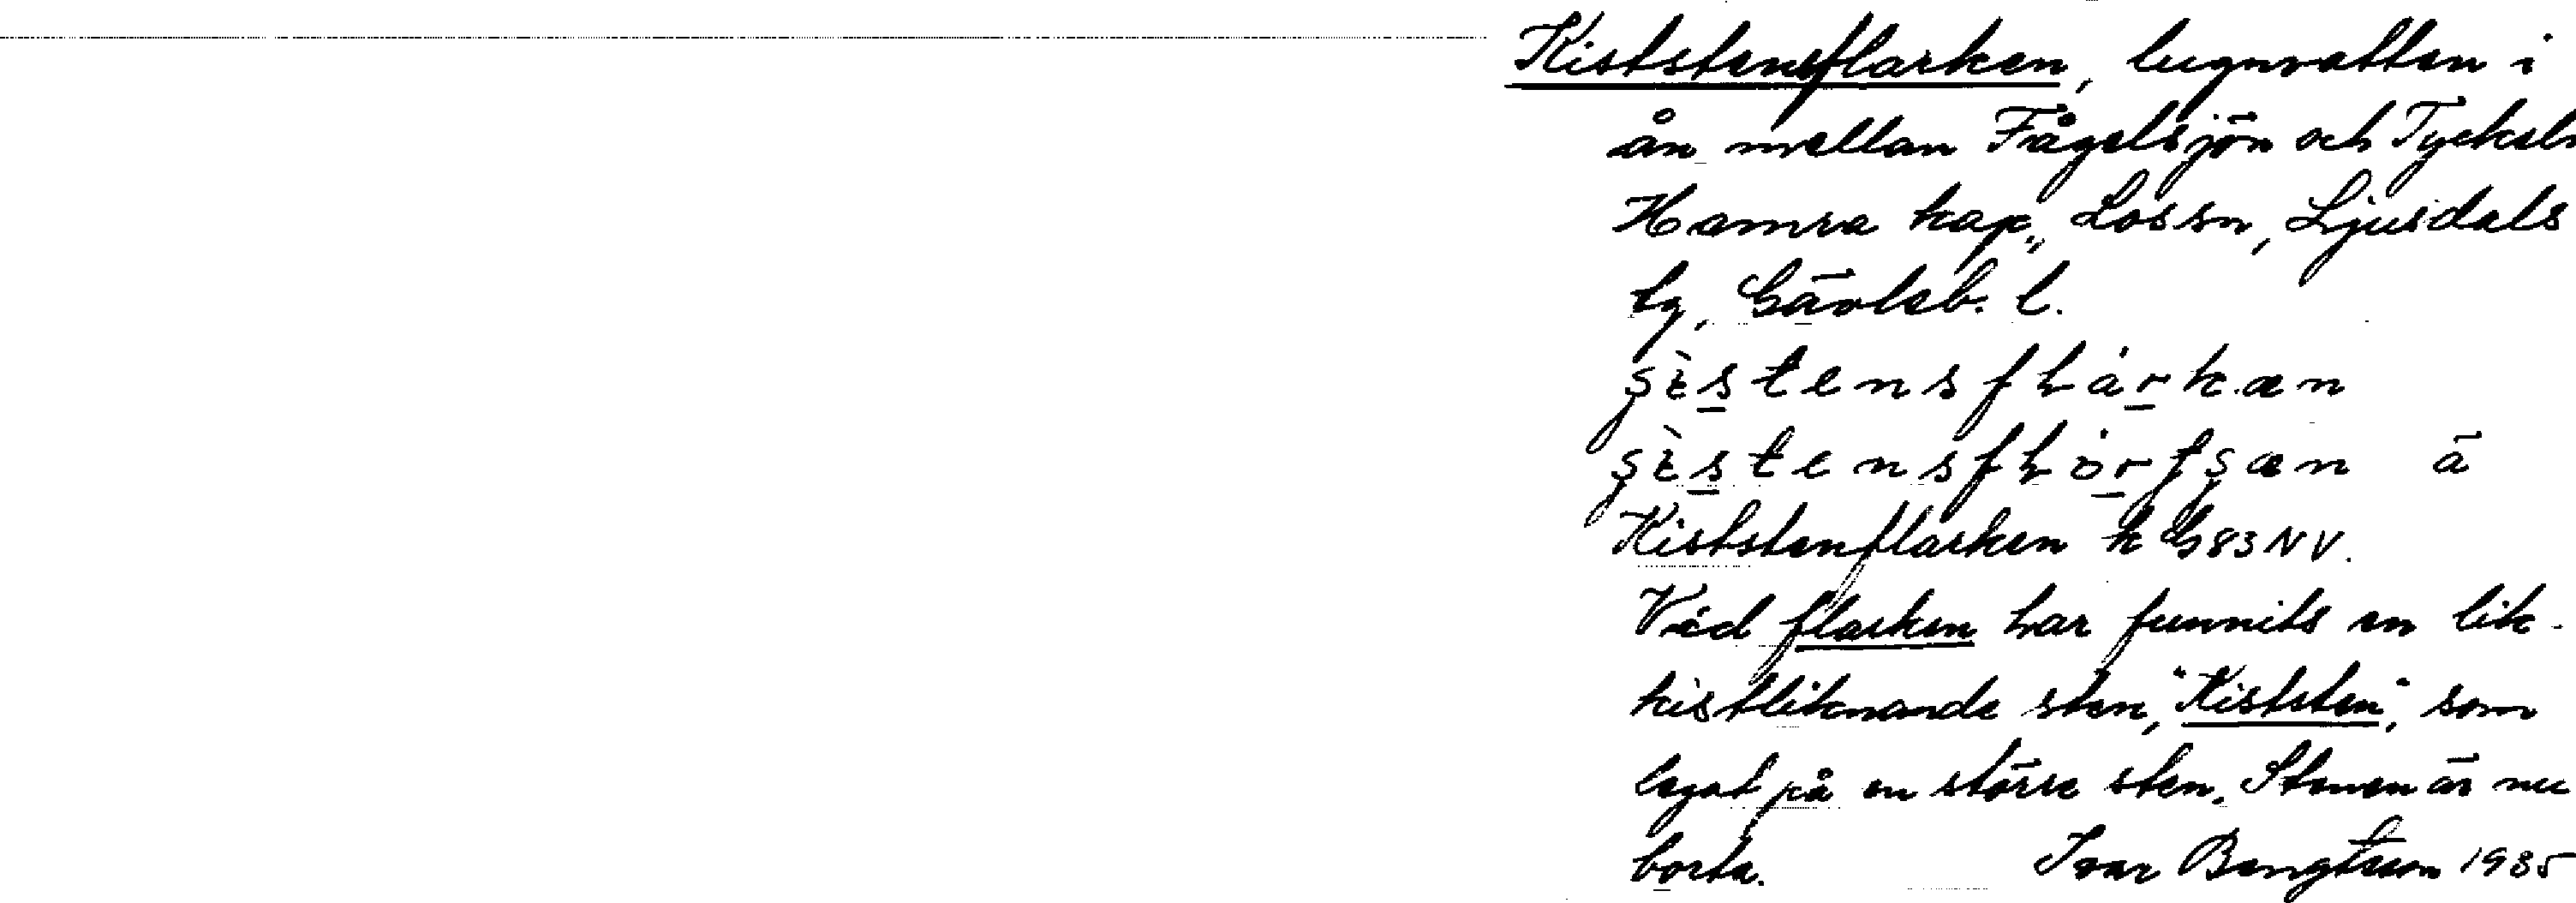 Kiststensflarken, lugnvatten i
ån mellan Fågelsjön och Tyckeln
Hamra kap., Los sn, Ljusdals
tg, Gävleb. l.
Kiststenflarken k G83NV.
Vid flarken har funnits en lik-
kistliknande sten, "Kiststen", som
legat på en större sten. Stenen är nu
borta. Ivar Bengtsson 1935